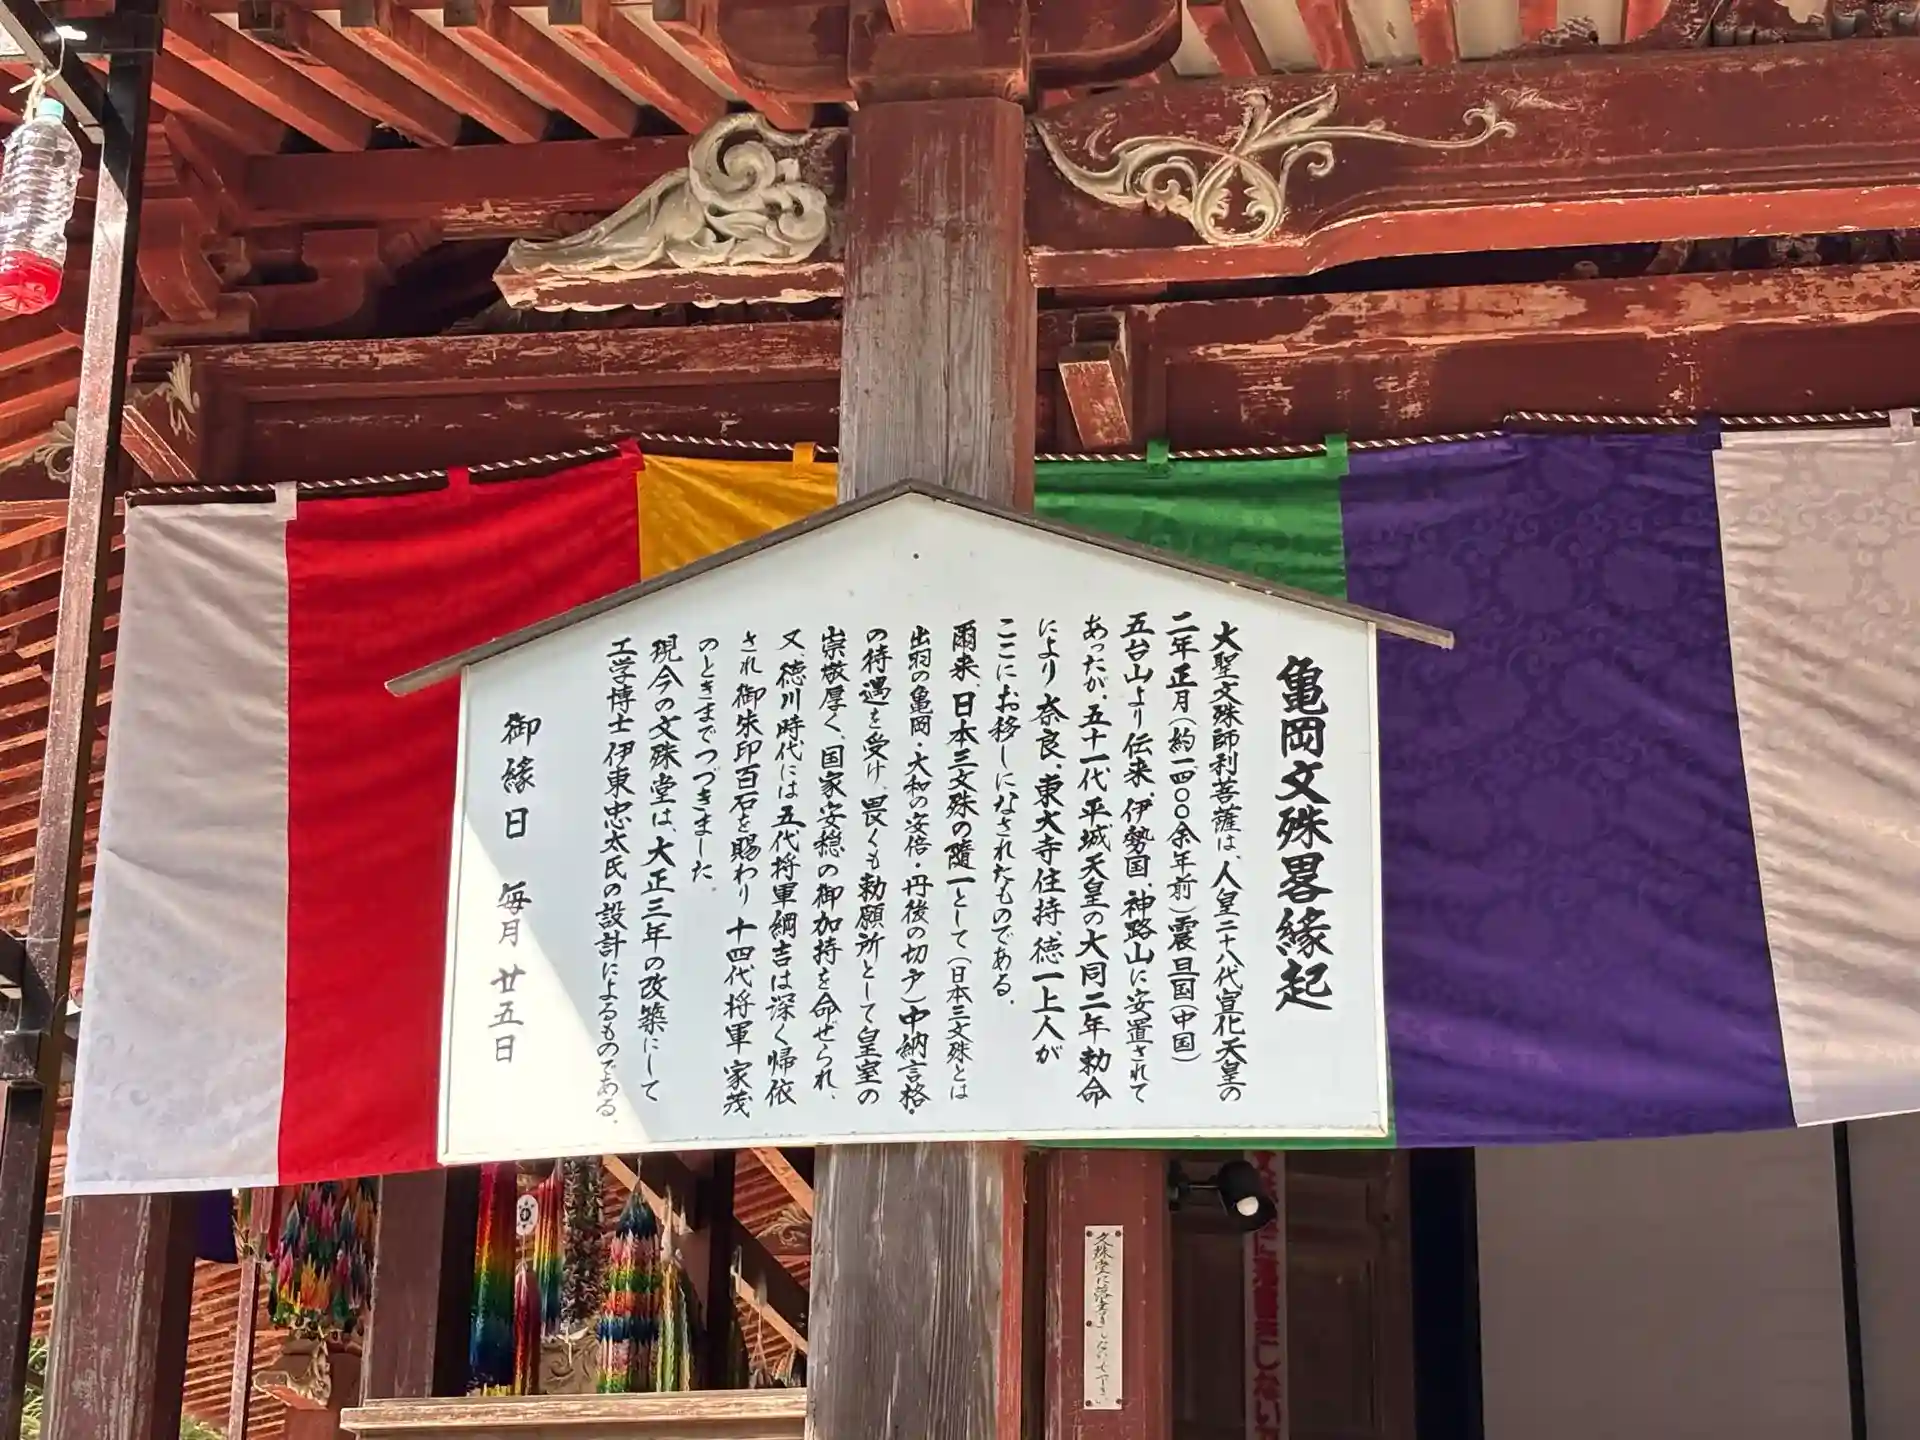 亀岡文殊畧縁起
大聖文殊師利菩薩は、人皇二十八代宣化天皇の
二年正月(約一四〇〇余年前)震旦国(中国)
五台山より伝来、伊勢国、神路山に安置されて
あったが、五十一代平城天皇の大同二年勅命
により奈良、東大寺住持、徳一上人が
ここにお移しになされたものである。
爾来、日本三文殊の随一として(日本三文殊とは
出羽の亀岡・大和の安倍・丹後の切戸)中納言格・
の待遇を受け、畏くも勅願所として皇室の
崇敬厚く、国家安穏の御加持を命ぜられ、
又、徳川時代には五代将軍綱吉は深く帰依
され御朱印百石を賜わり十四代将軍家茂
のときまでつづきました。
現今の文殊堂は、大正三年の改築にして
工学博士伊東忠太氏の設計によるものである。
御縁日 毎月廿五日
文殊堂に落書きしないで下さい
に落書きしない